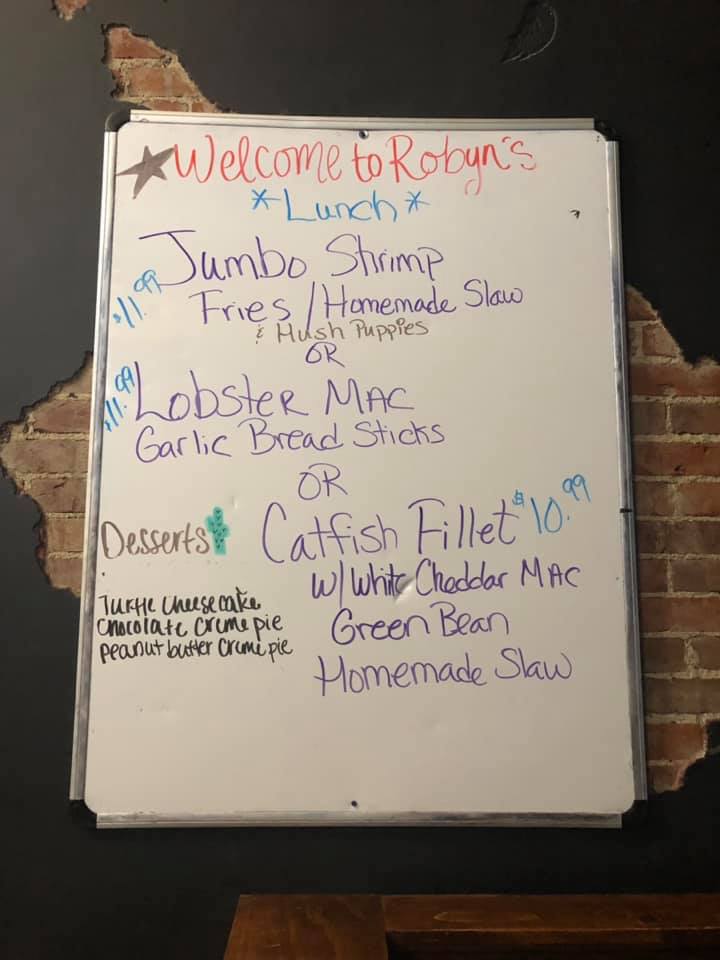 Welcome to Robyn's
*Lunch*
Jumbo Shrimp
$11.99 Fries / Homemade Slaw
& Hush Puppies
OR
$11.99 Lobster Mac
Garlic Bread Sticks
OR
Catfish Fillet $10.99
w/ White Cheddar Mac
Green Bean
Homemade Slaw
Desserts
Turtle Cheese cake
Chocolate Creme pie
peanut butter Creme pie